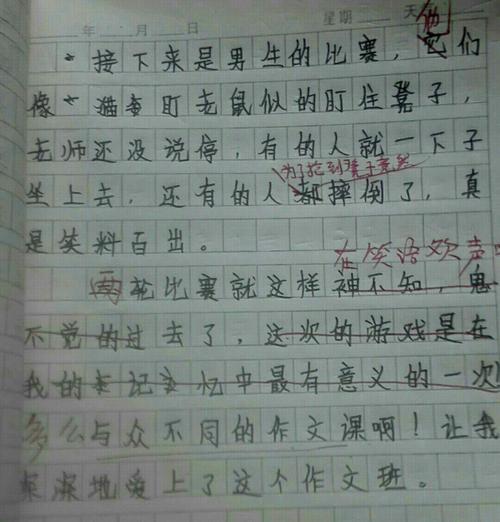 年 月 日 星期 天
他
接下来是男生的比赛，它们
像 猫 盯老鼠似的盯住凳子，
老师还没说停，有的人就一下子
为了抢到凳子竟然
坐上去，还有的人都摔倒了，真
是笑料百出。
在笑语欢声
两轮比赛就这样神不知，鬼
不觉的过去了，这次的游戏是在
我的 记忆中最有意义的一次
多么与众不同的作文课啊！让我
深深地爱上了这个作文班。